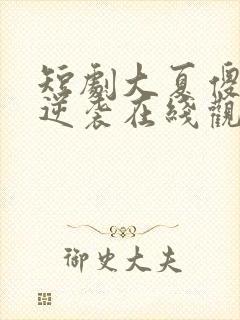 短劇大夏傻
逆袭在綫觀
御史大夫